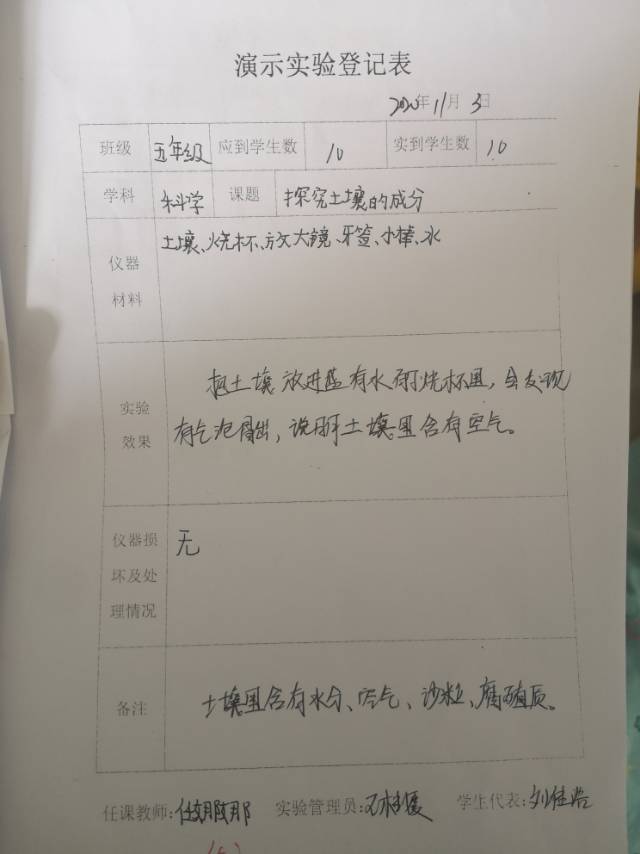 演示实验登记表
2020年11月3日
班级 五年级 应到学生数 10 实到学生数 10
学科 科学 课题 探究土壤的成分
仪器材料 土壤、烧杯、放大镜、牙签、小棒、水
实验效果 把土壤放进盛有水的烧杯里，会发现
有气泡冒出，说明土壤里含有空气。
仪器损坏及处理情况 无
备注 土壤里含有水分、空气、沙粒、腐殖质。
任课教师: 实验管理员: 学生代表:刘佳浩